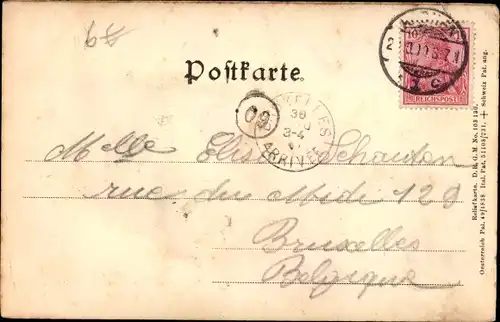 Postkarte.
10
REICHSPOST
60
ELLES
3-4
ARRIVEE
Melle Elise Schouten
rue du Midi 129
Bruxelles
Belgique
Reliefkarte. D. R. G. M. No. 103 130.
Oesterreich Pat. 49/1838. Ind. Pat. 51108/231. + Schweiz Pat. ang.